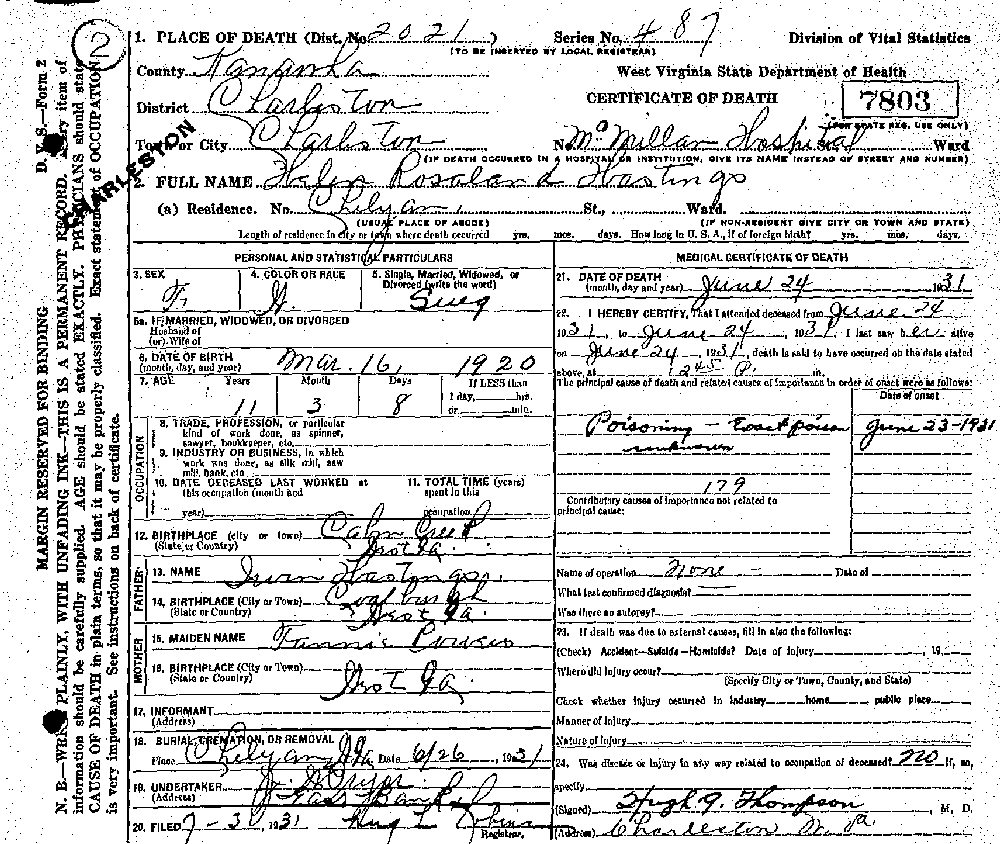 1. PLACE OF DEATH (Dist. No. 2021 ) Series No. 487 Division of Vital Statistics
(TO BE INSERTED BY LOCAL REGISTRAR)
2
County Kanawha West Virginia State Department of Health
District Charleston CERTIFICATE OF DEATH 7803
(FOR STATE REG. USE ONLY)
Town or City Charleston No. McMillan Hospital Ward
(IF DEATH OCCURRED IN A HOSPITAL OR INSTITUTION, GIVE ITS NAME INSTEAD OF STREET AND NUMBER)
2. FULL NAME Helen Rosaland Hastings
(a) Residence. No. Chelyan, St., Ward.
(USUAL PLACE OF ABODE) (IF NON-RESIDENT GIVE CITY OR TOWN AND STATE)
Length of residence in city or town where death occurred yrs. mos. days. How long in U. S. A., if of foreign birth? yrs. mos. days.
PERSONAL AND STATISTICAL PARTICULARS
3. SEX 4. COLOR OR RACE 5. Single, Married, Widowed, or
Divorced (write the word)
F. W Sing
5a. IF MARRIED, WIDOWED, OR DIVORCED
Husband of
(or) Wife of
6. DATE OF BIRTH
(month, day, and year) Mar. 16, 1920
7. AGE Years Month Days If LESS than
1 day, hrs.
11 3 8 or min.
OCCUPATION
8. TRADE, PROFESSION, or particular
kind of work done, as spinner,
sawyer, bookkeeper, etc.
9. INDUSTRY OR BUSINESS, in which
work was done, as silk mill, saw
mill, bank, etc
10. DATE DECEASED LAST WORKED at 11. TOTAL TIME (years)
this occupation (month and spent in this
year) occupation
12. BIRTHPLACE (city or town) Cabin Creek
(State or Country) West Va.
FATHER
13. NAME Irvin Hastings
14. BIRTHPLACE (City or Town) Coalburgh
(State or Country) West Va.
MOTHER
15. MAIDEN NAME Fannie
16. BIRTHPLACE (City or Town)
(State or Country) West Va
17. INFORMANT
(Address)
18. BURIAL, CREMATION, OR REMOVAL
Place Chelyan, W Va Date 6/26, 1931
19. UNDERTAKER
(Address) East Bank
20. FILED 7-3, 1931 Hugh
Registrar.
MEDICAL CERTIFICATE OF DEATH
21. DATE OF DEATH
(month, day and year) June 24 1931
22. I HEREBY CERTIFY, That I attended deceased from June 24
1931, to June 24, 1931. I last saw her alive
on June 24, 1931, death is said to have occurred on the date stated
above, at 1245 P. m.
The principal cause of death and related causes of importance in order of onset were as follows:
Date of onset
Poisoning - Exact poison June 23-1931
unknown
179
Contributory causes of importance not related to
principal cause:
Name of operation None - Date of
What test confirmed diagnosis?
Was there an autopsy?
23. If death was due to external causes, fill in also the following:
(Check) Accident—Suicide—Homicide? Date of Injury , 19
Where did injury occur?
(Specify City or Town, County, and State)
Check whether injury occurred in industry home public place
Manner of Injury
Nature of Injury
24. Was disease or injury in any way related to occupation of deceased? no If, so,
specify
(Signed) Hugh G. Thompson, M. D.
(Address) Charleston W. Va.
D. V. S.—Form 2
MARGIN RESERVED FOR BINDING
N. B.—WRITE PLAINLY, WITH UNFADING INK—THIS IS A PERMANENT RECORD. Every item of
information should be carefully supplied. AGE should be stated EXACTLY. PHYSICIANS should state
CAUSE OF DEATH in plain terms, so that it may be properly classified. Exact statement of OCCUPATION
is very important. See instructions on back of certificate.
CHARLESTON